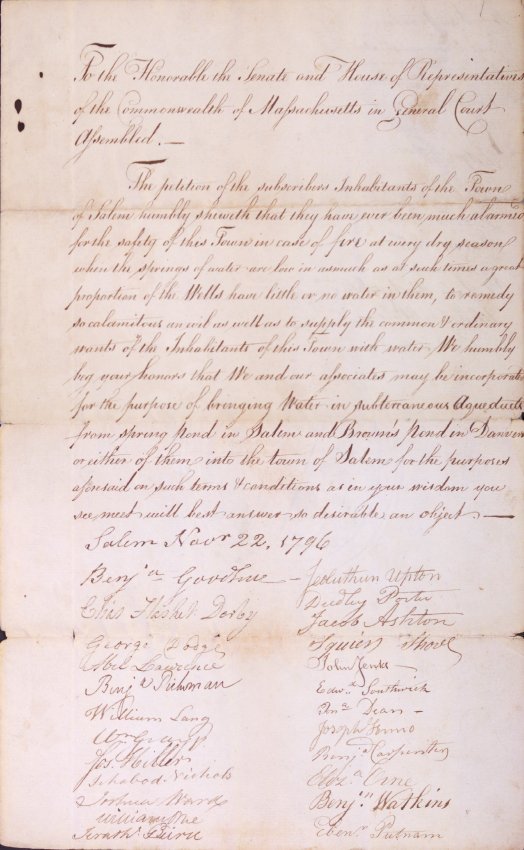 To the Honorable the Senate and House of Representatives
of the Commonwealth of Massachusetts in General Court
Assembled. —
The petition of the subscribers Inhabitants of the Town
of Salem humbly sheweth that they have ever been much alarmed
for the safety of this Town in case of fire at every dry season
when the springs of water are low in asmuch as at such times a great
proportion of the Wells have little or no water in them, to remedy
so calamitous an evil as well as to supply the common & ordinary
wants of the Inhabitants of this Town with water We humbly
beg your honors that We and our associates may be incorporate
for the purpose of bringing Water in subterraneous Aqueducts
from spring pond in Salem and Brown's pond in Danvers
or either of them into the town of Salem for the purposes
aforesaid on such terms & conditions as in your wisdom you
see meet will best answer so desirable an object —
Salem Novr 22. 1796
Benja Goodhue — Jeduthun Upton
Elias Hasket Derby Dudley Porter
George Dodge Jacob Ashton
Abel Lawrence Squiers Shove
Benja Pickman John Jenks
William Lang Edwd Southwick
Wm Gray Dean —
Jos. Hiller Joseph
Ichabod Nichols Benja Carpenter
Joshua Ward Orne
William Benjn Watkins
Ebenr Putnam